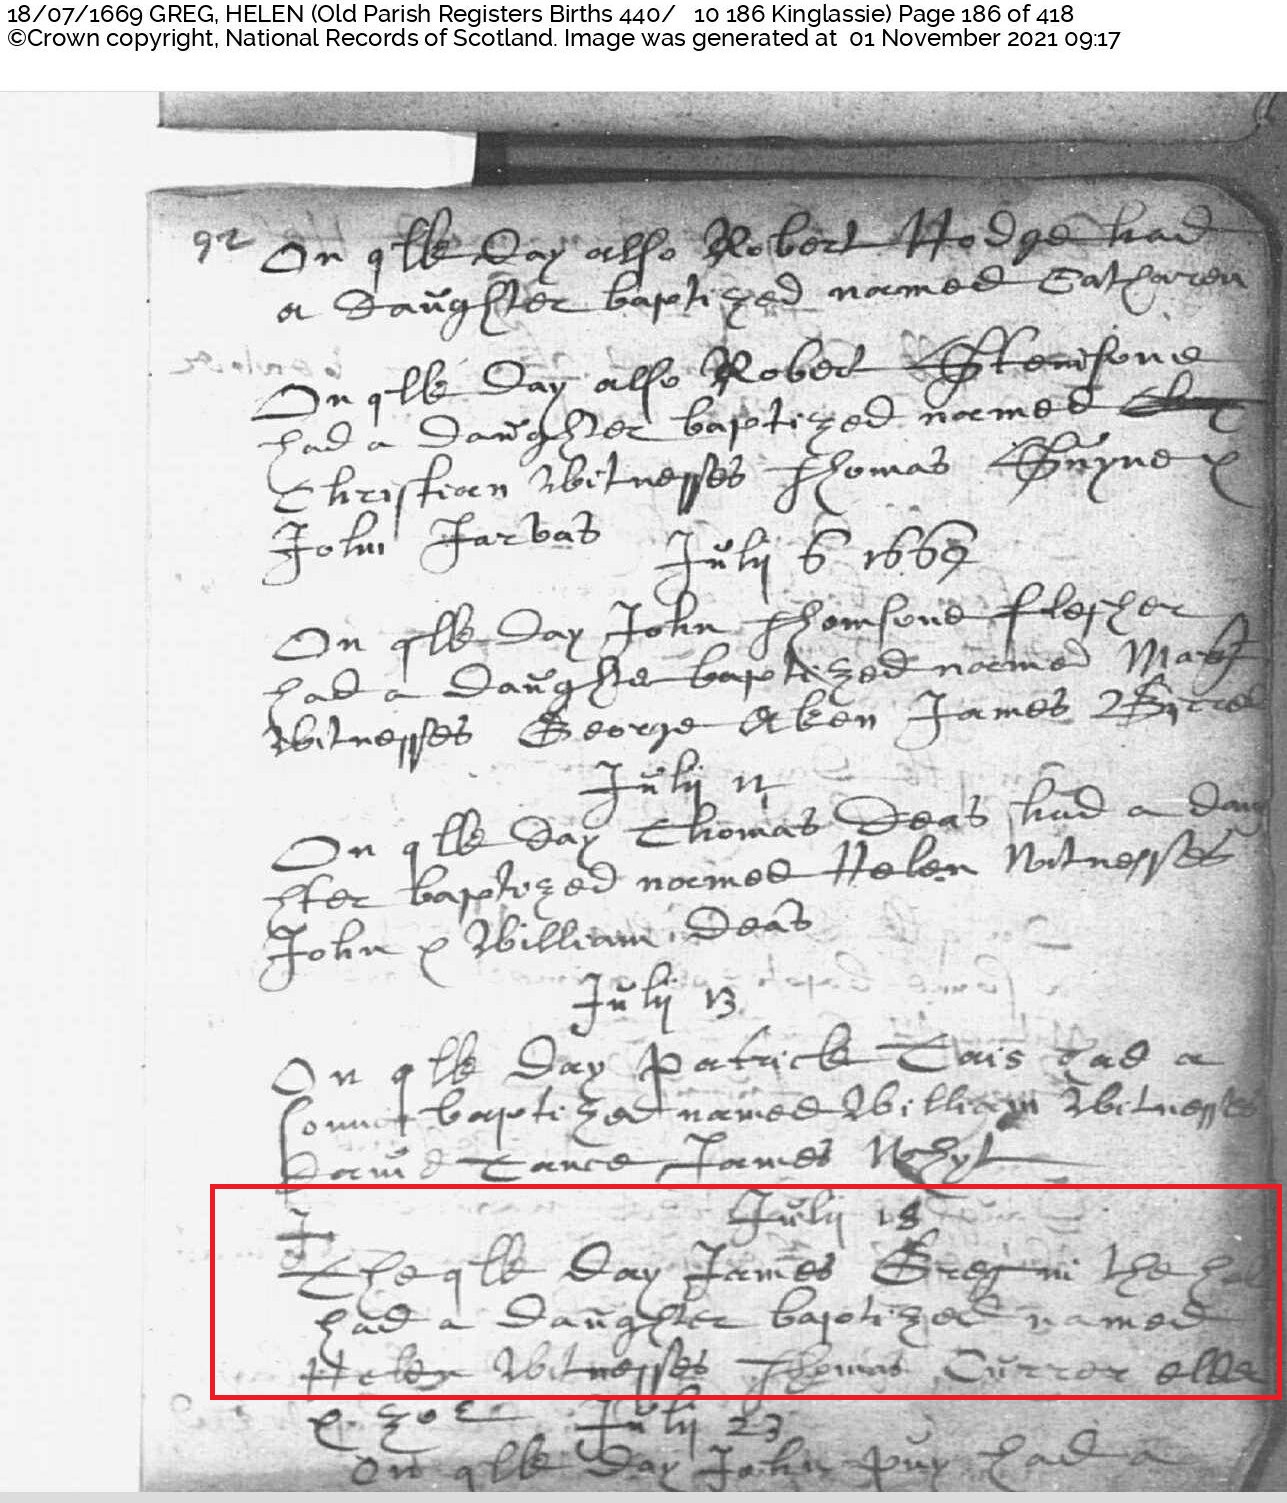 18/07/1669 GREG, HELEN (Old Parish Registers Births 440/ 10 186 Kinglassie) Page 186 of 418
©Crown copyright, National Records of Scotland. Image was generated at 01 November 2021 09:17
92 On qlk day also Robert Hodge had
a daughter baptized named Catharen
On qlk day also Robert Stensone
had a daughter baptized named
Christian Witnesses Thomas &
John Jarvas
Julij 6 1669
On qlk day John Thomsone flesher
had a daughter baptized named
Witnesses George Aken James
Julij 11
On qlk day Thomas Deas had a daug
hter baptized named Helen Witnesses
John & William Deas
Julij 13
On qlk day Patrick Tais had a
sonne baptized named William Witnesses
David Tance James Whyt
Julij 18
The qlk day James Greg in the
had a daughter baptized named
Helen Witnesses Thomas Currer
Julij 23
On qlk day John had a